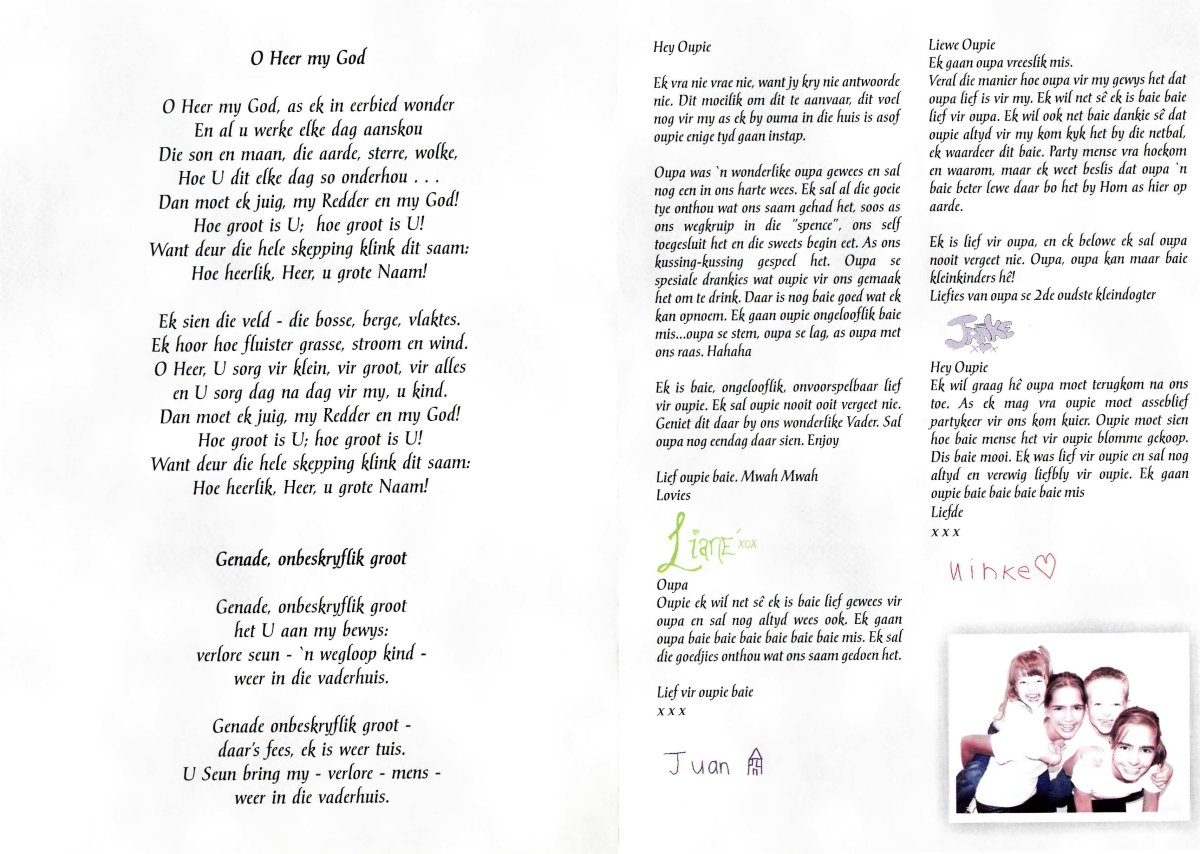 O Heer my God
O Heer my God, as ek in eerbied wonder
En al u werke elke dag aanskou
Die son en maan, die aarde, sterre, wolke,
Hoe U dit elke dag so onderhou . . .
Dan moet ek juig, my Redder en my God!
Hoe groot is U;  hoe groot is U!
Want deur die hele skepping klink dit saam:
Hoe heerlik, Heer, u grote Naam!
Ek sien die veld - die bosse, berge, vlaktes.
Ek hoor hoe fluister grasse, stroom en wind.
O Heer, U sorg vir klein, vir groot, vir alles
en U sorg dag na dag vir my, u kind.
Dan moet ek juig, my Redder en my God!
Hoe groot is U; hoe groot is U!
Want deur die hele skepping klink dit saam:
Hoe heerlik, Heer, u grote Naam!
Genade, onbeskryflik groot
Genade, onbeskryflik groot
het U aan my bewys:
verlore seun - `n wegloop kind -
weer in die vaderhuis.
Genade onbeskryflik groot -
daar's fees, ek is weer tuis.
U Seun bring my - verlore - mens -
weer in die vaderhuis.
Hey Oupie
Ek vra nie vrae nie, want jy kry nie antwoorde
nie. Dit moeilik om dit te aanvaar, dit voel
nog vir my as ek by ouma in die huis is asof
oupie enige tyd gaan instap.
Oupa was `n wonderlike oupa gewees en sal
nog een in ons harte wees. Ek sal al die goeie
tye onthou wat ons saam gehad het, soos as
ons wegkruip in die "spence", ons self
toegesluit het en die sweets begin eet. As ons
kussing-kussing gespeel het. Oupa se
spesiale drankies wat oupie vir ons gemaak
het om te drink. Daar is nog baie goed wat ek
kan opnoem. Ek gaan oupie ongelooflik baie
mis...oupa se stem, oupa se lag, as oupa met
ons raas. Hahaha
Ek is baie, ongelooflik, onvoorspelbaar lief
vir oupie. Ek sal oupie nooit ooit vergeet nie.
Geniet dit daar by ons wonderlike Vader. Sal
oupa nog eendag daar sien. Enjoy
Lief oupie baie. Mwah Mwah
Lovies
Liane´ xox
Oupa
Oupie ek wil net sê ek is baie lief gewees vir
oupa en sal nog altyd wees ook. Ek gaan
oupa baie baie baie baie baie baie mis. Ek sal
die goedjies onthou wat ons saam gedoen het.
Lief vir oupie baie
x x x
Juan
Liewe Oupie
Ek gaan oupa vreeslik mis.
Veral die manier hoe oupa vir my gewys het dat
oupa lief is vir my. Ek wil net sê ek is baie baie
lief vir oupa. Ek wil ook net baie dankie sê dat
oupie altyd vir my kom kyk het by die netbal,
ek waardeer dit baie. Party mense vra hoekom
en waarom, maar ek weet beslis dat oupa `n
baie beter lewe daar bo het by Hom as hier op
aarde.
Ek is lief vir oupa, en ek belowe ek sal oupa
nooit vergeet nie. Oupa, oupa kan maar baie
kleinkinders hê!
Liefies van oupa se 2de oudste kleindogter
JANKE
Hey Oupie
Ek wil graag hê oupa moet terugkom na ons
toe. As ek mag vra oupie moet asseblief
partykeer vir ons kom kuier. Oupie moet sien
hoe baie mense het vir oupie blomme gekoop.
Dis baie mooi. Ek was lief vir oupie en sal nog
altyd en verewig liefbly vir oupie. Ek gaan
oupie baie baie baie baie mis
Liefde
x x x
Ninke